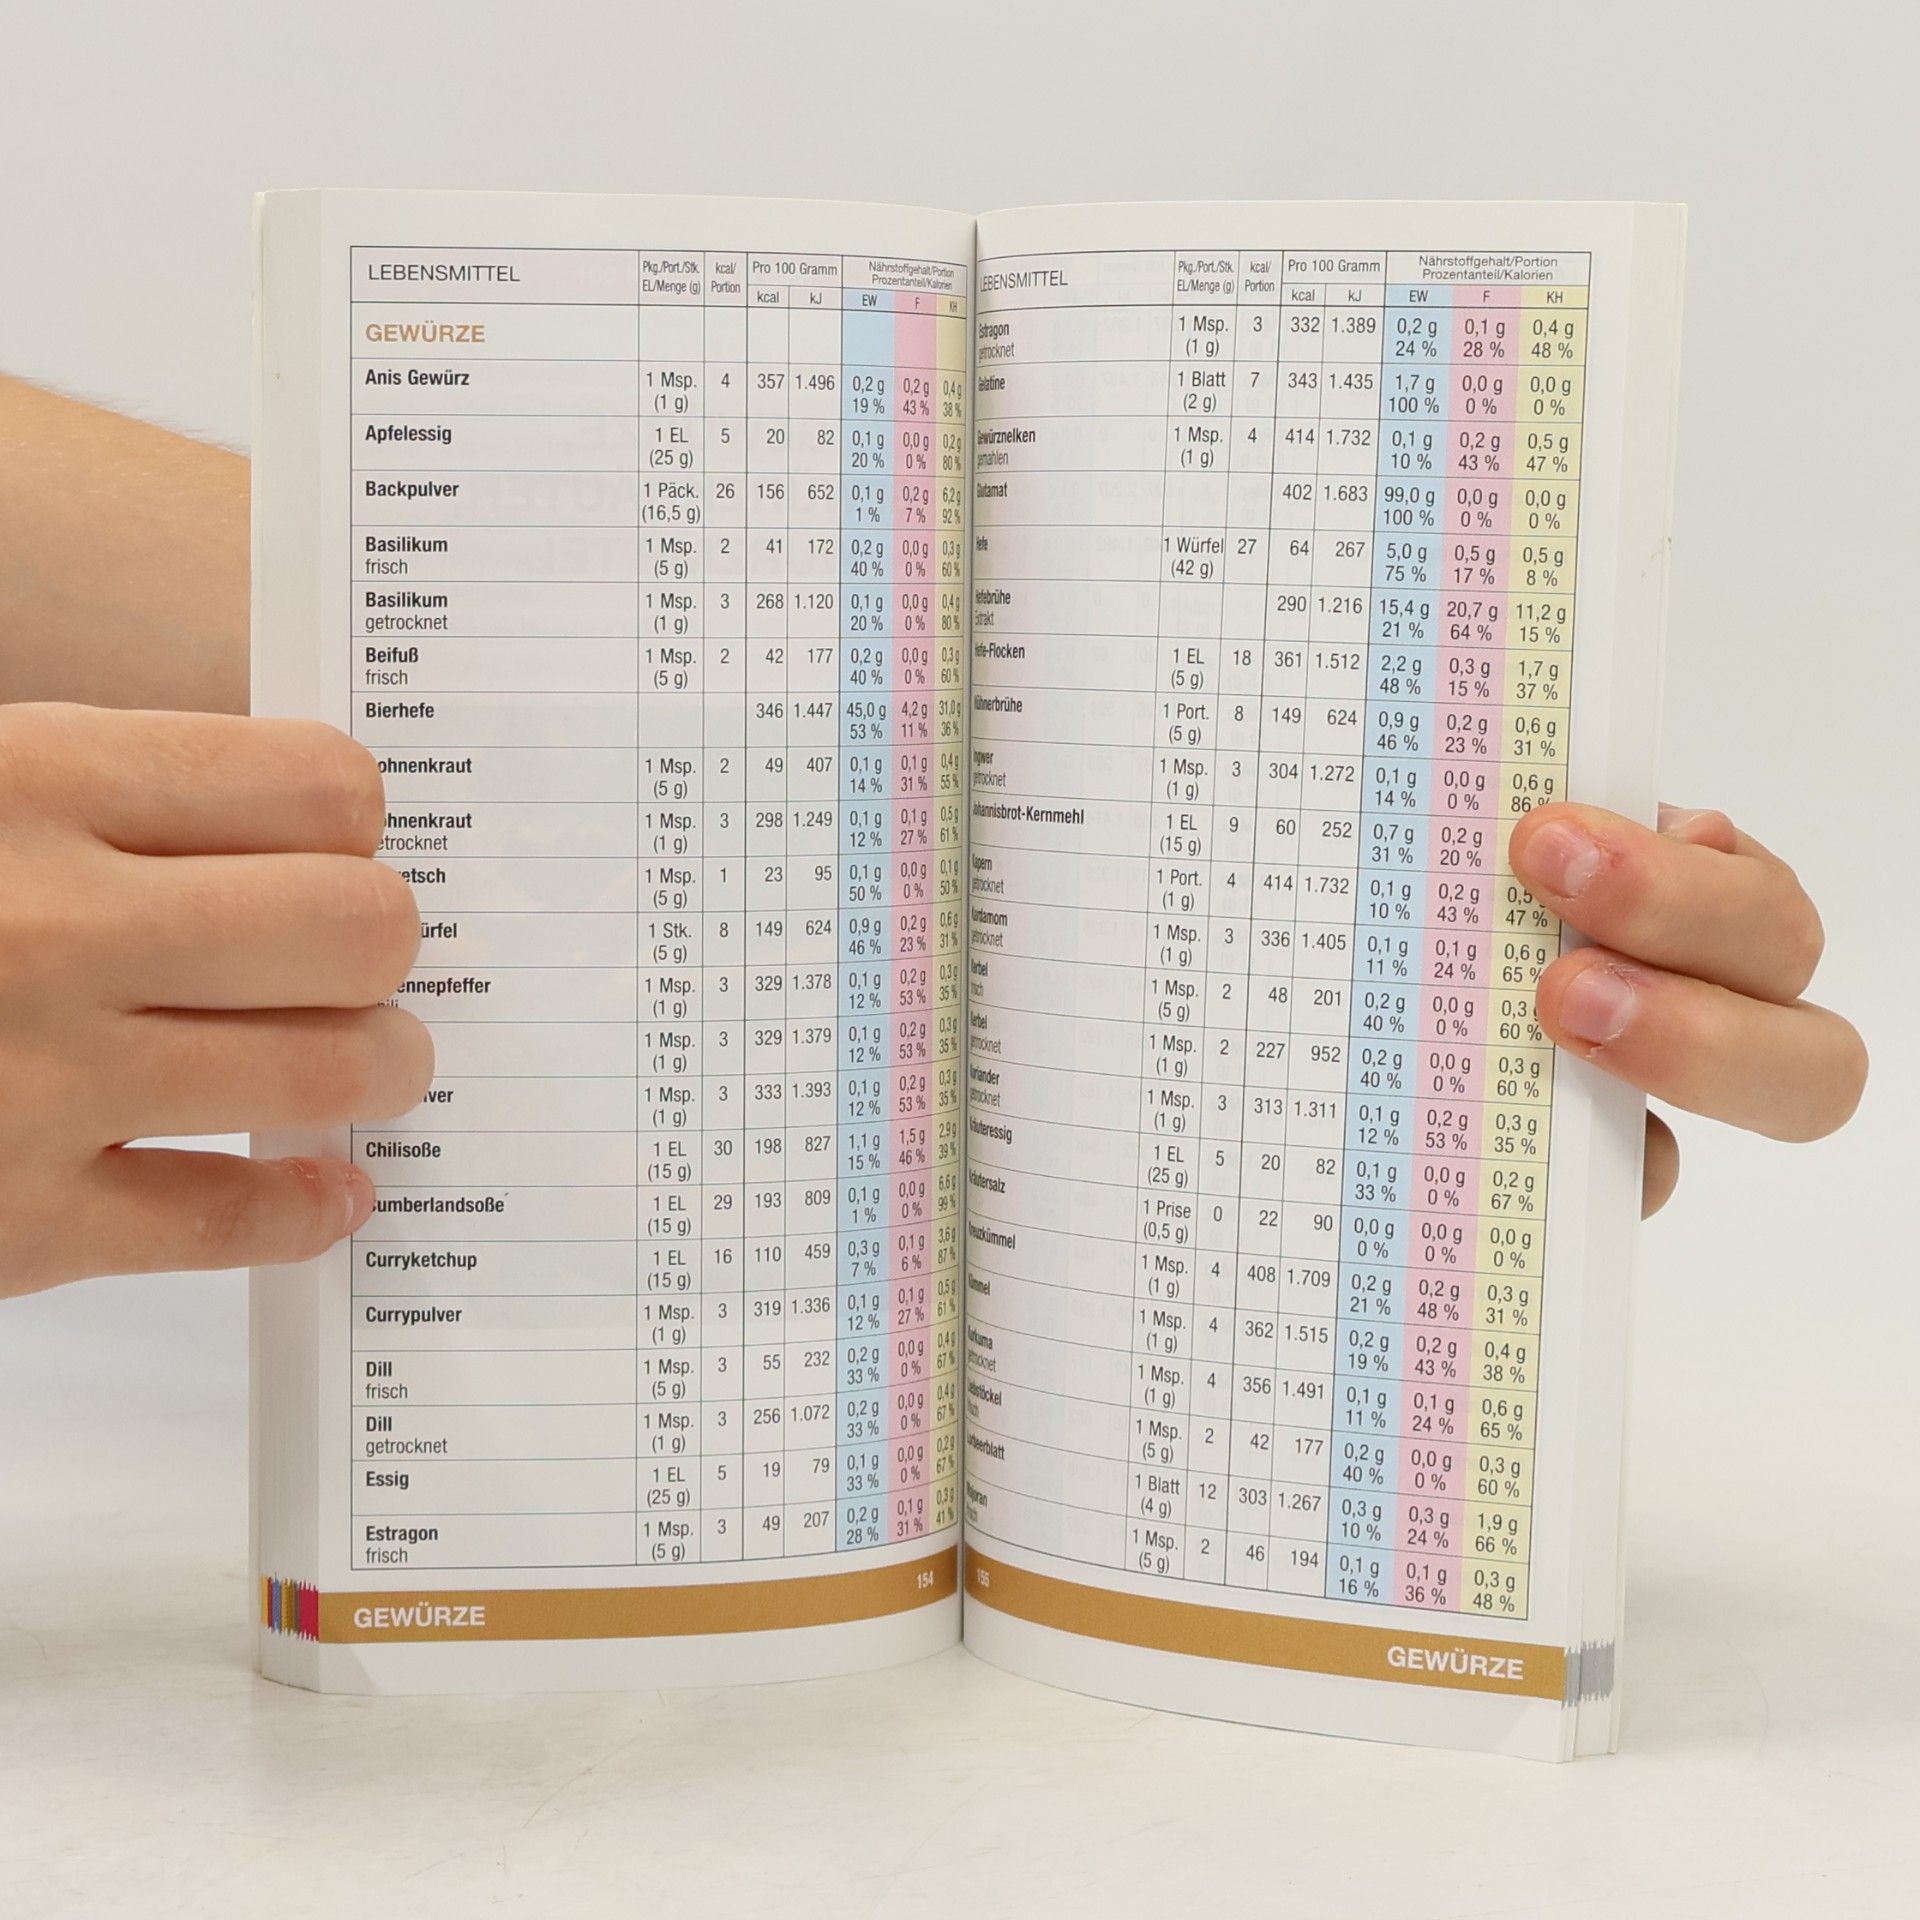 LEBENSMITTEL Pkg./Port./Stk. EL/Menge (g) kcal/ Portion Pro 100 Gramm kcal kJ Nährstoffgehalt/Portion Prozentanteil/Kalorien EW F KH
GEWÜRZE
Anis Gewürz 1 Msp. 4 357 1.496 0,2 g 0,2 g 0,4 g
(1 g) 19 % 43 % 38 %
Apfelessig 1 EL 5 20 82 0,1 g 0,0 g 0,2 g
(25 g) 20 % 0 % 80 %
Backpulver 1 Päck. 26 156 652 0,1 g 0,2 g 6,2 g
(16,5 g) 1 % 7 % 92 %
Basilikum 1 Msp. 2 41 172 0,2 g 0,0 g 0,3 g
frisch (5 g) 40 % 0 % 60 %
Basilikum 1 Msp. 3 268 1.120 0,1 g 0,0 g 0,4 g
getrocknet (1 g) 20 % 0 % 80 %
Beifuß 1 Msp. 2 42 177 0,2 g 0,0 g 0,3 g
frisch (5 g) 40 % 0 % 60 %
Bierhefe 346 1.447 45,0 g 4,2 g 31,0 g
53 % 11 % 36 %
ohnenkraut 1 Msp. 2 49 407 0,1 g 0,1 g 0,4 g
(5 g) 14 % 31 % 55 %
ohnenkraut 1 Msp. 3 298 1.249 0,1 g 0,1 g 0,5 g
etrocknet (1 g) 12 % 27 % 61 %
retsch 1 Msp. 1 23 95 0,1 g 0,0 g 0,1 g
(5 g) 50 % 0 % 50 %
ürfel 1 Stk. 8 149 624 0,9 g 0,2 g 0,6 g
(5 g) 46 % 23 % 31 %
ennepfeffer 1 Msp. 3 329 1.378 0,1 g 0,2 g 0,3 g
(1 g) 12 % 53 % 35 %
1 Msp. 3 329 1.379 0,1 g 0,2 g 0,3 g
(1 g) 12 % 53 % 35 %
lver 1 Msp. 3 333 1.393 0,1 g 0,2 g 0,3 g
(1 g) 12 % 53 % 35 %
Chilisoße 1 EL 30 198 827 1,1 g 1,5 g 2,9 g
(15 g) 15 % 46 % 39 %
umberlandsoße 1 EL 29 193 809 0,1 g 0,0 g 6,6 g
(15 g) 1 % 0 % 99 %
Curryketchup 1 EL 16 110 459 0,3 g 0,1 g 3,6 g
(15 g) 7 % 6 % 87 %
Currypulver 1 Msp. 3 319 1.336 0,1 g 0,1 g 0,5 g
(1 g) 12 % 27 % 61 %
Dill 1 Msp. 3 55 232 0,2 g 0,0 g 0,4 g
frisch (5 g) 33 % 0 % 67 %
Dill 1 Msp. 3 256 1.072 0,2 g 0,0 g 0,4 g
getrocknet (1 g) 33 % 0 % 67 %
Essig 1 EL 5 19 79 0,1 g 0,0 g 0,2 g
(25 g) 33 % 0 % 67 %
Estragon 1 Msp. 3 49 207 0,2 g 0,1 g 0,3 g
frisch (5 g) 28 % 31 % 41 %
154
GEWÜRZE
LEBENSMITTEL Pkg./Port./Stk. EL/Menge (g) kcal/ Portion Pro 100 Gramm kcal kJ Nährstoffgehalt/Portion Prozentanteil/Kalorien EW F KH
Estragon 1 Msp. 3 332 1.389 0,2 g 0,1 g 0,4 g
getrocknet (1 g) 24 % 28 % 48 %
Gelatine 1 Blatt 7 343 1.435 1,7 g 0,0 g 0,0 g
(2 g) 100 % 0 % 0 %
Gewürznelken 1 Msp. 4 414 1.732 0,1 g 0,2 g 0,5 g
gemahlen (1 g) 10 % 43 % 47 %
Glutamat 402 1.683 99,0 g 0,0 g 0,0 g
100 % 0 % 0 %
Hefe 1 Würfel 27 64 267 5,0 g 0,5 g 0,5 g
(42 g) 75 % 17 % 8 %
Hefebrühe 290 1.216 15,4 g 20,7 g 11,2 g
Extrakt 21 % 64 % 15 %
Hefe-Flocken 1 EL 18 361 1.512 2,2 g 0,3 g 1,7 g
(5 g) 48 % 15 % 37 %
Hühnerbrühe 1 Port. 8 149 624 0,9 g 0,2 g 0,6 g
(5 g) 46 % 23 % 31 %
Ingwer 1 Msp. 3 304 1.272 0,1 g 0,0 g 0,6 g
getrocknet (1 g) 14 % 0 % 86 %
Johannisbrot-Kernmehl 1 EL 9 60 252 0,7 g 0,2 g
(15 g) 31 % 20 %
Kapern 1 Port. 4 414 1.732 0,1 g 0,2 g 0,5
getrocknet (1 g) 10 % 43 % 47 %
Kardamom 1 Msp. 3 336 1.405 0,1 g 0,1 g 0,6 g
getrocknet (1 g) 11 % 24 % 65 %
Kerbel 1 Msp. 2 48 201 0,2 g 0,0 g 0,3
frisch (5 g) 40 % 0 % 60 %
Kerbel 1 Msp. 2 227 952 0,2 g 0,0 g 0,3 g
getrocknet (1 g) 40 % 0 % 60 %
Koriander 1 Msp. 3 313 1.311 0,1 g 0,2 g 0,3 g
getrocknet (1 g) 12 % 53 % 35 %
Kräuteressig 1 EL 5 20 82 0,1 g 0,0 g 0,2 g
(25 g) 33 % 0 % 67 %
Kräutersalz 1 Prise 0 22 90 0,0 g 0,0 g 0,0 g
(0,5 g) 0 % 0 % 0 %
Kreuzkümmel 1 Msp. 4 408 1.709 0,2 g 0,2 g 0,3 g
(1 g) 21 % 48 % 31 %
Kümmel 1 Msp. 4 362 1.515 0,2 g 0,2 g 0,4 g
(1 g) 19 % 43 % 38 %
Kurkuma 1 Msp. 4 356 1.491 0,1 g 0,1 g 0,6 g
getrocknet (1 g) 11 % 24 % 65 %
Liebstöckel 1 Msp. 2 42 177 0,2 g 0,0 g 0,3 g
frisch (5 g) 40 % 0 % 60 %
Lorbeerblatt 1 Blatt 12 303 1.267 0,3 g 0,3 g 1,9 g
(4 g) 10 % 24 % 66 %
Majoran 1 Msp. 2 46 194 0,1 g 0,1 g 0,3 g
frisch (5 g) 16 % 36 % 48 %
155
GEWÜRZE